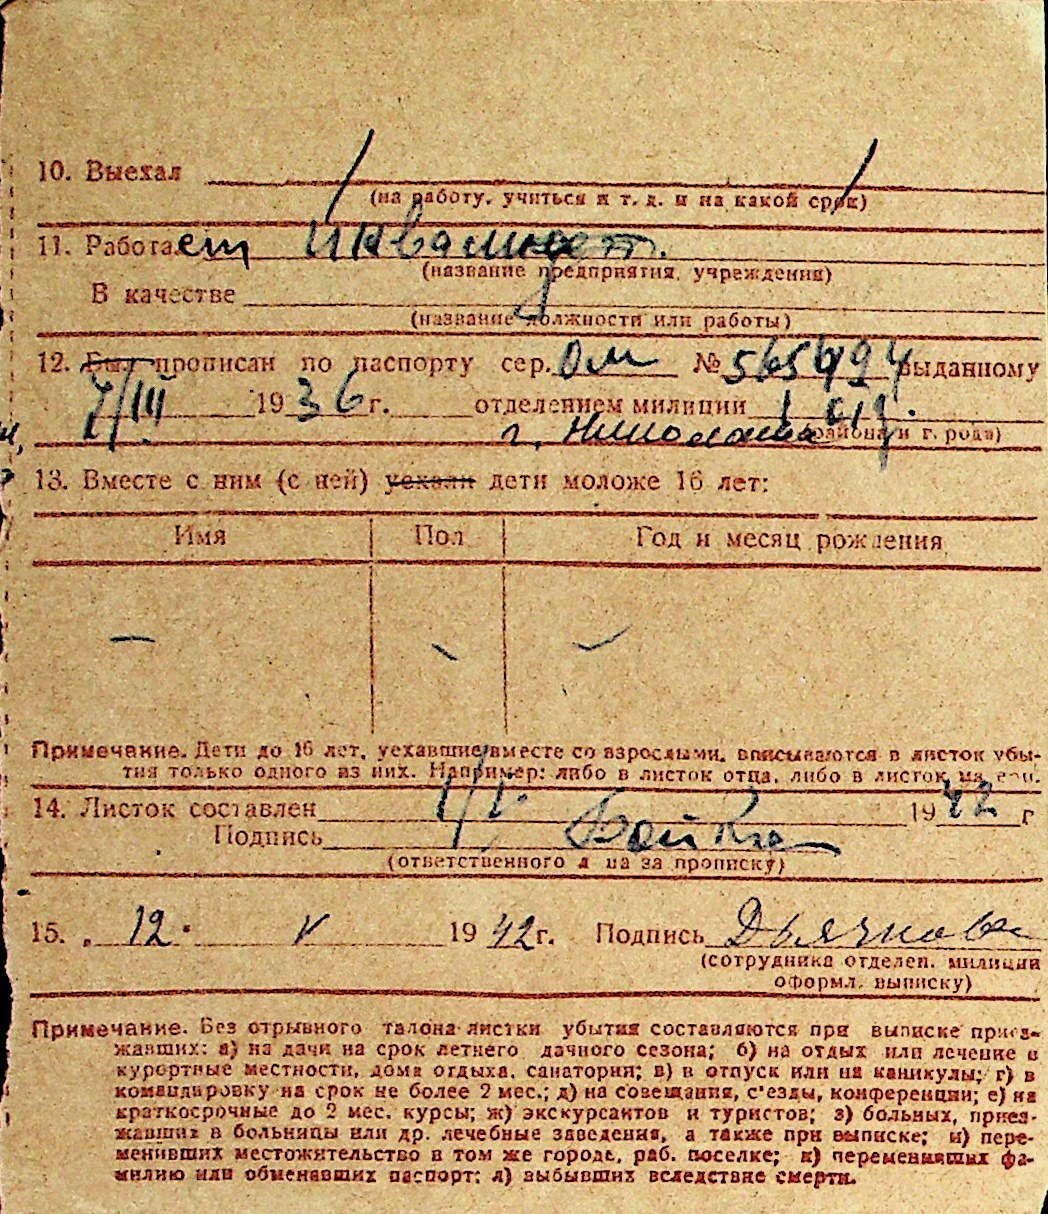 10. Выехал
(на работу, учиться и т. д. и на какой срок)
11. Работает
(название предприятия, учреждения)
В качестве
(название должности или работы)
12. Был прописан по паспорту сер. ОМ № выданному
7/III 1936 г. отделением милиции 1
г. (района и г. рода)
13. Вместе с ним (с ней) уехали дети моложе 16 лет:
Имя Пол Год и месяц рождения
Примечание. Дети до 16 лет, уехавшие вместе со взрослыми, вписываются в листок убы-
тия только одного из них. Например: либо в листок отца, либо в листок
14. Листок составлен 1942 г
Подпись Бойко
(ответственного за прописку)
15. „ 12 " V 1942 г. Подпись Дьячкова
(сотрудника отделен. милиции
оформл. выписку)
Примечание. Без отрывного талона листки убытия составляются при выписке приез-
жавших: а) на дачи на срок летнего дачного сезона; б) на отдых или лечение в
курортные местности, дома отдыха, санатории; в) в отпуск или на каникулы; г) в
командировку на срок не более 2 мес.; д) на совещания, с'езды, конференции; е) на
краткосрочные до 2 мес. курсы; ж) экскурсантов и туристов; з) больных, приез-
жавших в больницы или др. лечебные заведения, а также при выписке; и) пере-
менивших местожительство в том же городе, раб. поселке; к) переменивших фа-
милию или обменявших паспорт; л) выбывших вследствие смерти.